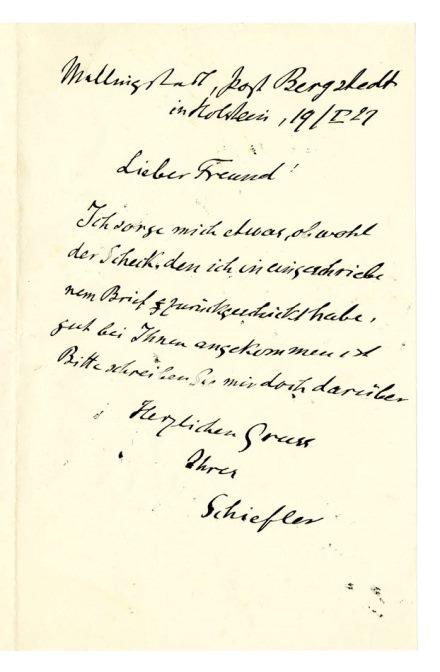 Mellingstedt, Post Bergstedt
in Holstein, 19/II 27
Lieber Freund!
Ich sorge mich etwas, ob wohl
der Scheck, den ich in eingeschriebe
nem Brief zurückgeschickt habe,
gut bei Ihnen angekommen ist
Bitte schreiben Sie mir doch darüber
Herzlichen Gruss
Ihres
Schiefler